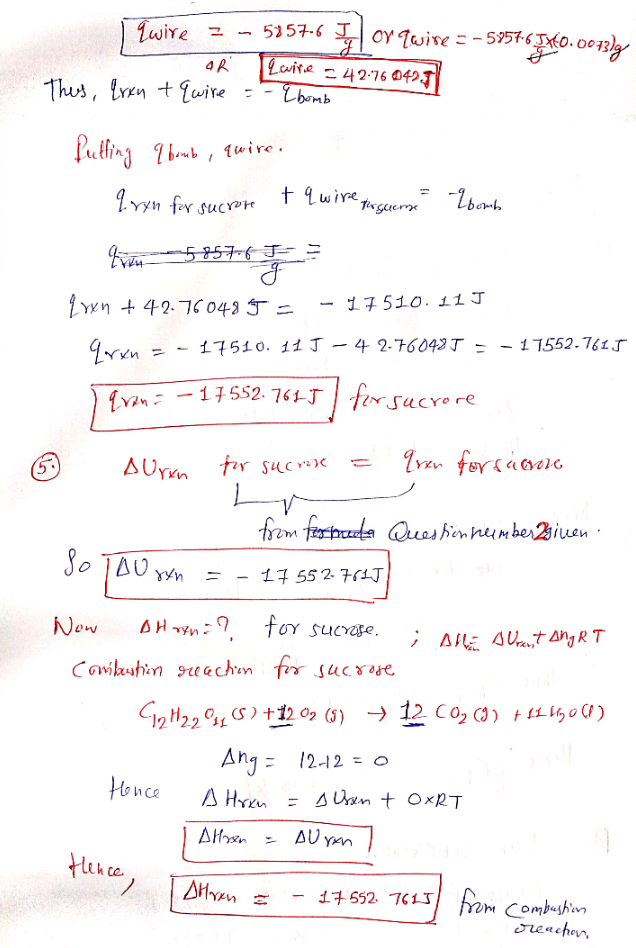 qwire = - 5857.6 J/g or qwire = - 5857.6 J/g x(0.0073)g
OR qwire = 42.76 042 J
Thus, qrxn + qwire = - qbomb
Putting qbomb, qwire.
qrxn for sucrose + qwire for sucrose = -qbomb
qrxn - 5857.6 J/g =
qrxn + 42.76048 J = - 17510.11 J
qrxn = - 17510.11 J - 42.76048 J = - 17552.761 J
qrxn = - 17552.761 J for sucrose
5. ΔUrxn for sucrose = qrxn for sucrose
from formula Question number 2 given.
So ΔUrxn = - 17552.761 J
Now ΔHrxn = ? for sucrose. ; ΔHrxn = ΔUrxn + ΔngRT
Combustion reaction for sucrose
C12H22O11 (S) + 12O2 (g) → 12 CO2 (g) + 11 H2O (l)
Δng = 12-12 = 0
Hence ΔHrxn = ΔUrxn + 0xRT
ΔHrxn = ΔUrxn
Hence, ΔHrxn = - 17552.761 J from Combustion reaction,